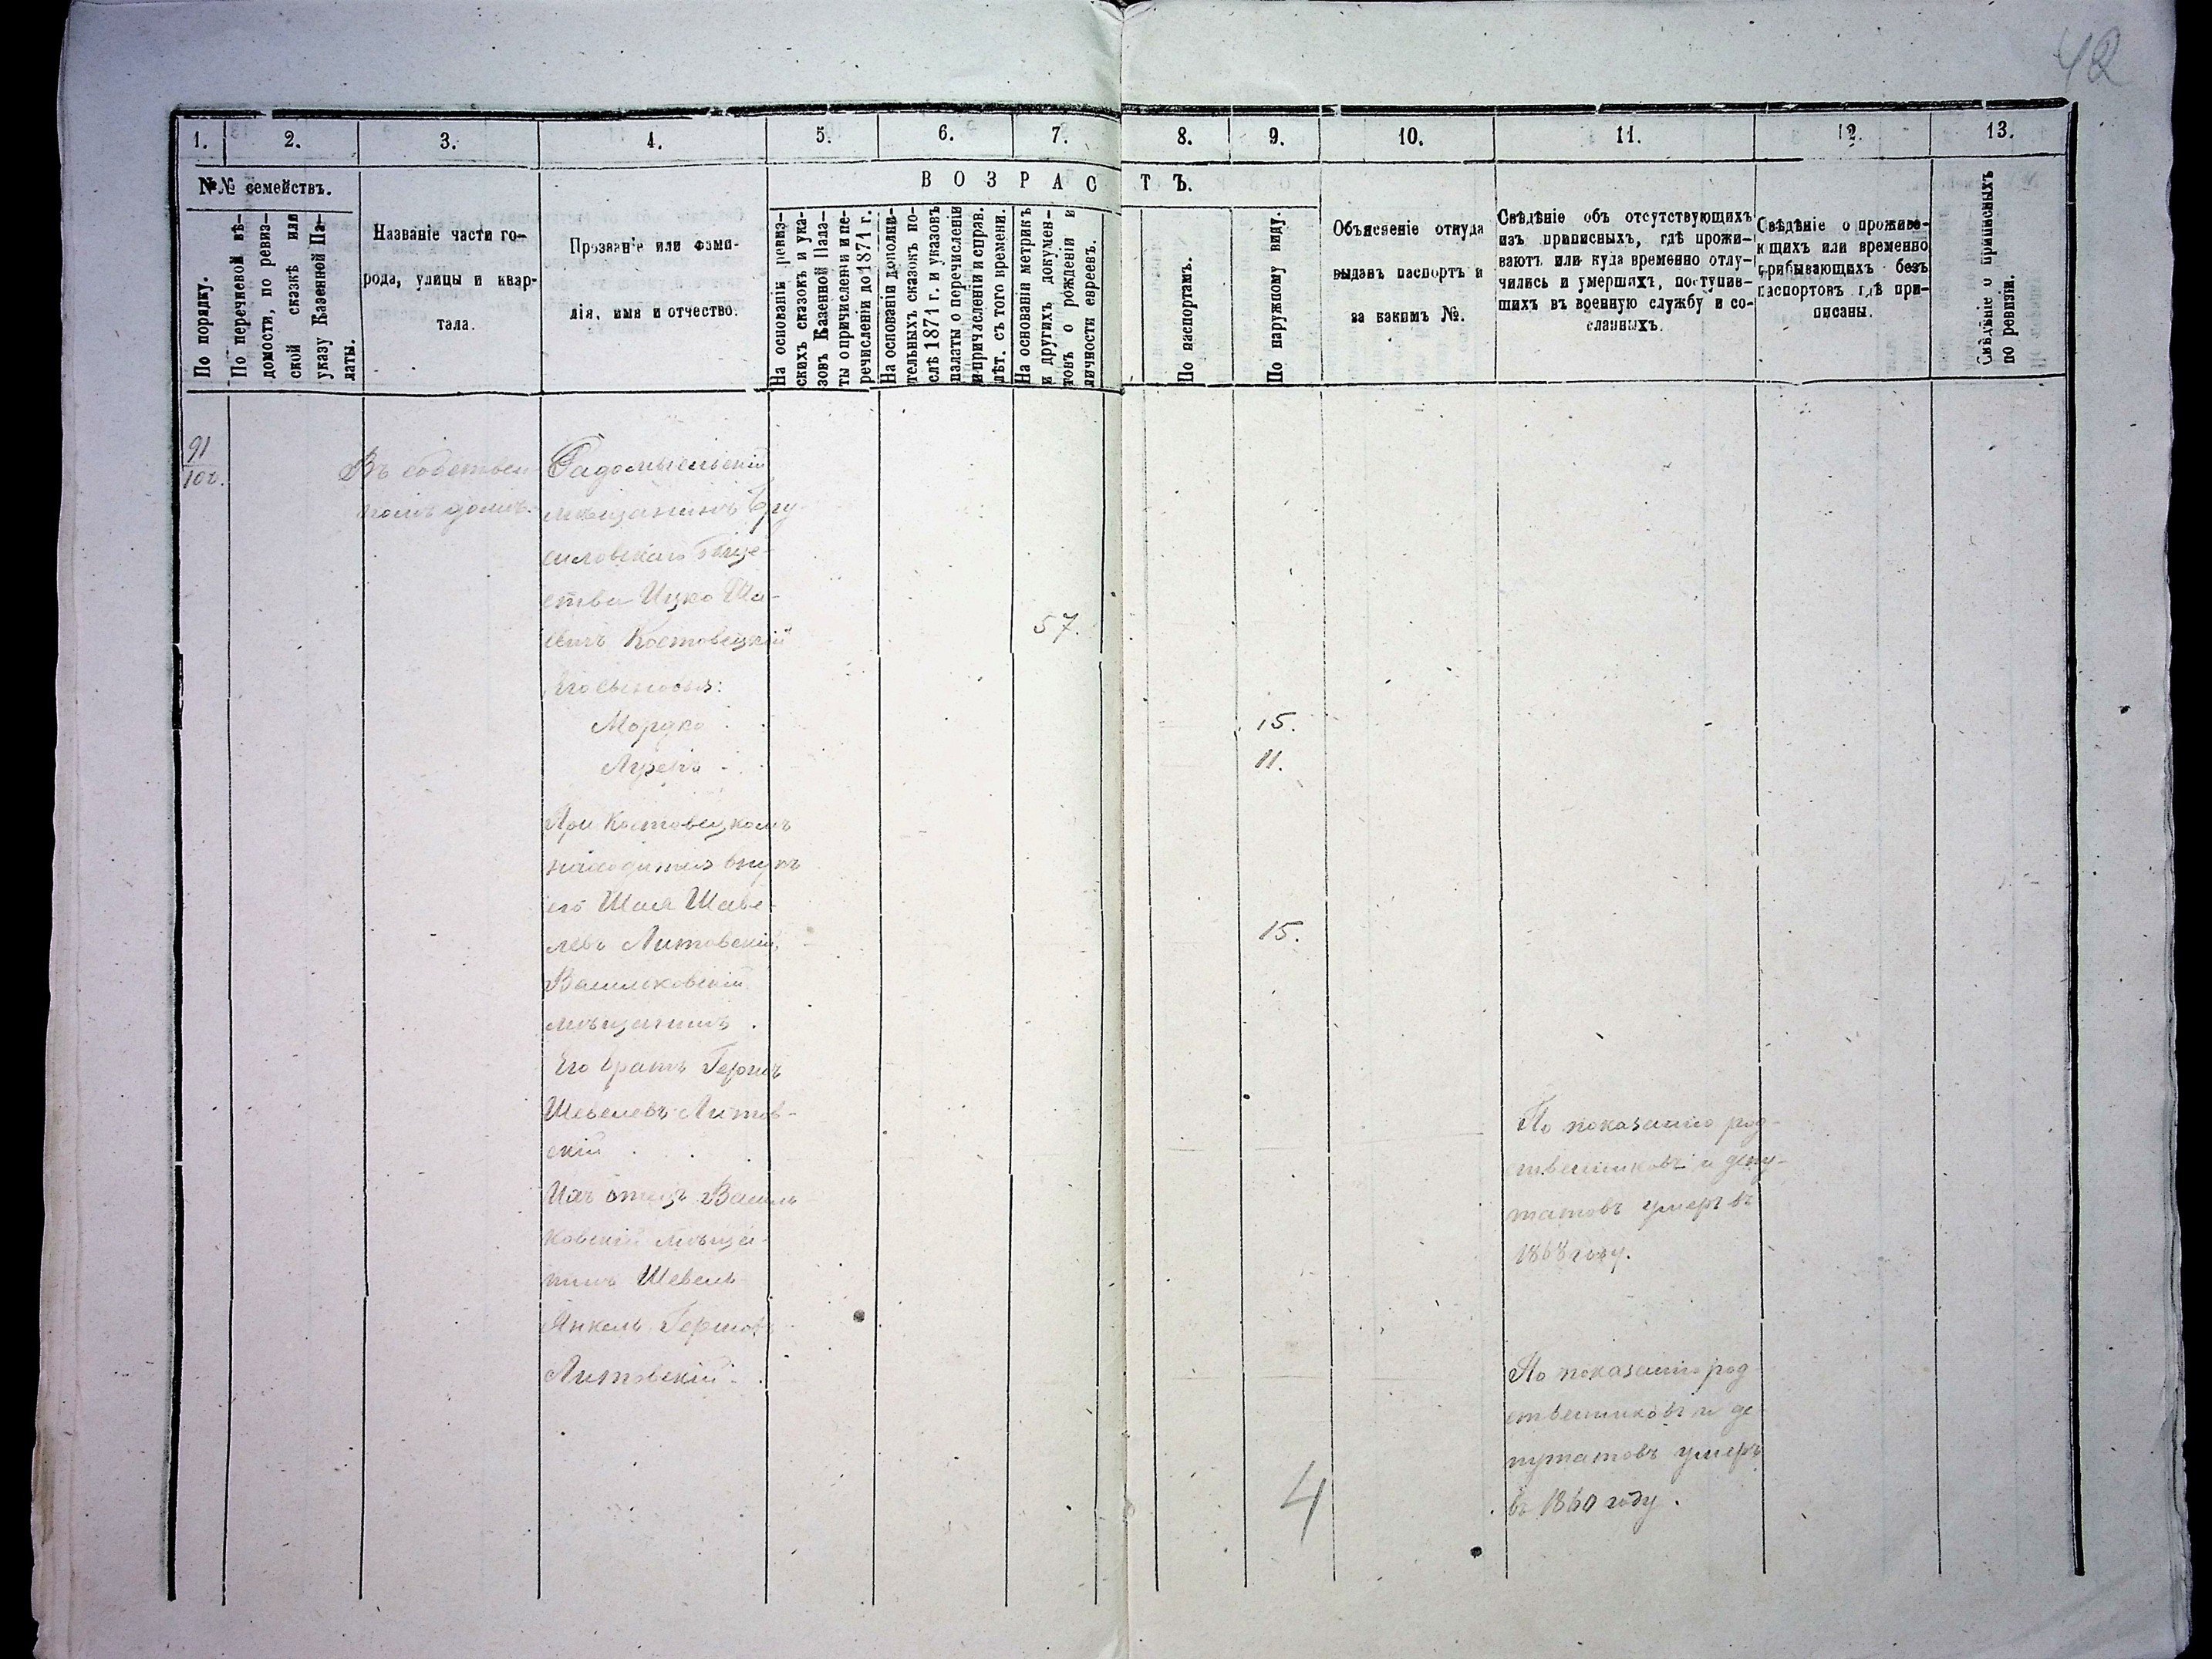 42
1. 2. 3. 4. 5. 6. 7. 8. 9. 10. 11. 12. 13.
№№ семействъ.
ВОЗРАСТЪ.
По порядку.
По перечневой вѣ-
домости, по ревиз-
ской сказкѣ или
указу Казенной Па-
латы.
Названіе части го-
рода, улицы и квар-
тала.
Прозваніе или фами-
лія, имя и отчество.
На основаніи ревиз-
скихъ сказокъ и ука-
зовъ Казенной Пала-
ты о причисленіи и пе-
речисленіи до 1871 г.
На основаніи дополни-
тельныхъ сказокъ по-
слѣ 1871 г. и указовъ
палаты о перечисленіи
и причисленіи и справ.
лѣт. съ того времени.
На основаніи метрикъ
и другихъ докумен-
товъ о рожденіи и
личности евреевъ.
По паспортамъ.
По наружному виду.
Объясненіе откуда
выданъ паспортъ и
за какимъ №.
Свѣдѣніе объ отсутствующихъ
изъ приписныхъ, гдѣ прожи-
ваютъ или куда временно отлу-
чились и умершихъ, поступив-
шихъ въ военную службу и со-
сланныхъ.
Свѣдѣніе о прожива-
ющихъ или временно
прибывающихъ безъ
паспортовъ гдѣ при-
писаны.
Свѣдѣніе о приписныхъ
по ревизіи.
91
Въ собствен
номъ домѣ.
Радомысльскій
мѣщанинъ Бру-
силовскаго Обще-
ства Ицко Ша-
евичъ Костовецкій
57.
Его сыновья:
Мордко
15.
Лузеръ
11.
При Костовецкомъ
находится внукъ
его Шая Шеве-
левъ Литовскій,
15.
Васильковскій
мѣщанинъ.
Его братъ Гершъ
Шевелевъ Литов-
скій
По показанію род-
ственниковъ и депу-
татовъ умеръ въ
1868 году.
Ихъ отецъ Василь
ковскій мѣща-
нинъ Шевель
Янкель Гершовъ
Литовскій.
По показанію род
ственниковъ и де
путатовъ умеръ
въ 1860 году.
4